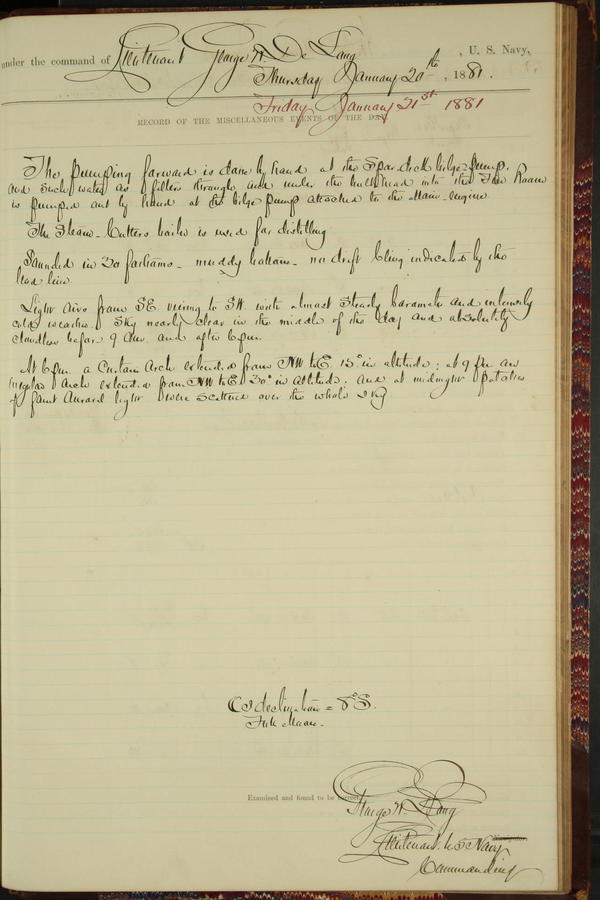 under the command of Lieutenant George W. De Long, U. S. Navy,
Thursday January 20th, 1881.
Friday January 21st 1881
RECORD OF THE MISCELLANEOUS EVENTS OF THE DAY.
The pumping forward is done by hand at the Spar deck bilge pump.
and such water as filters through and under the bulkhead into the Fire Room
is pumped out by hand at the bilge pump attached to the Main engine
The Steam-Cutters boiler is used for distilling
Sounded in 30 fathoms - muddy bottom - no drift being indicated by the
lead line.
Light airs from SE veering to SW. with almost steady barometer and intensely
cold weather. Sky nearly clear in the middle of the day and absolutely
cloudless before 9 am. and after 6 pm.
At 6 pm. a Curtain Arch extended from NW to E. 15° in altitude; at 9 pm an
irregular Arch extended from NW to E 30° in altitude. and at midnight patches
of faint Auroral light were scattered over the whole sky
declination = 8° S.
Full Moon.
Examined and found to be correct.
George W. De Long
Lieutenant U S Navy
Commanding